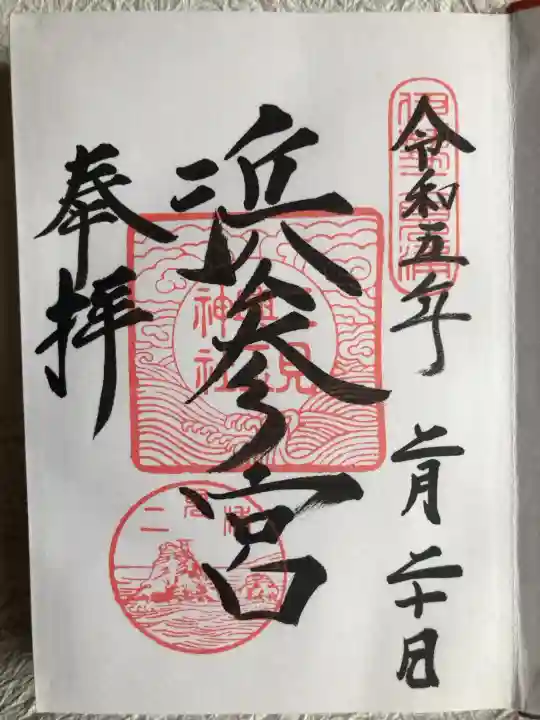 令和五年 二月二十日
浜参宮
奉拝
二見
興玉
神社